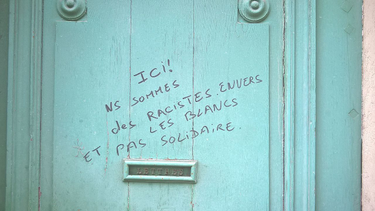 ICi!
NS SOMMES
des RACISTES ENVERS
LES BLANCS
ET PAS SOLIDAIRE.